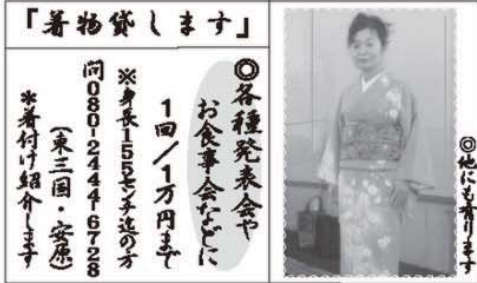 「着物貸します」
◎各種発表会や
お食事会などに
1回/1万円まで
※身長155センチ迄の方
問080-2444-6728
(東三国・安原)
※着付け紹介します
◎他にも有ります